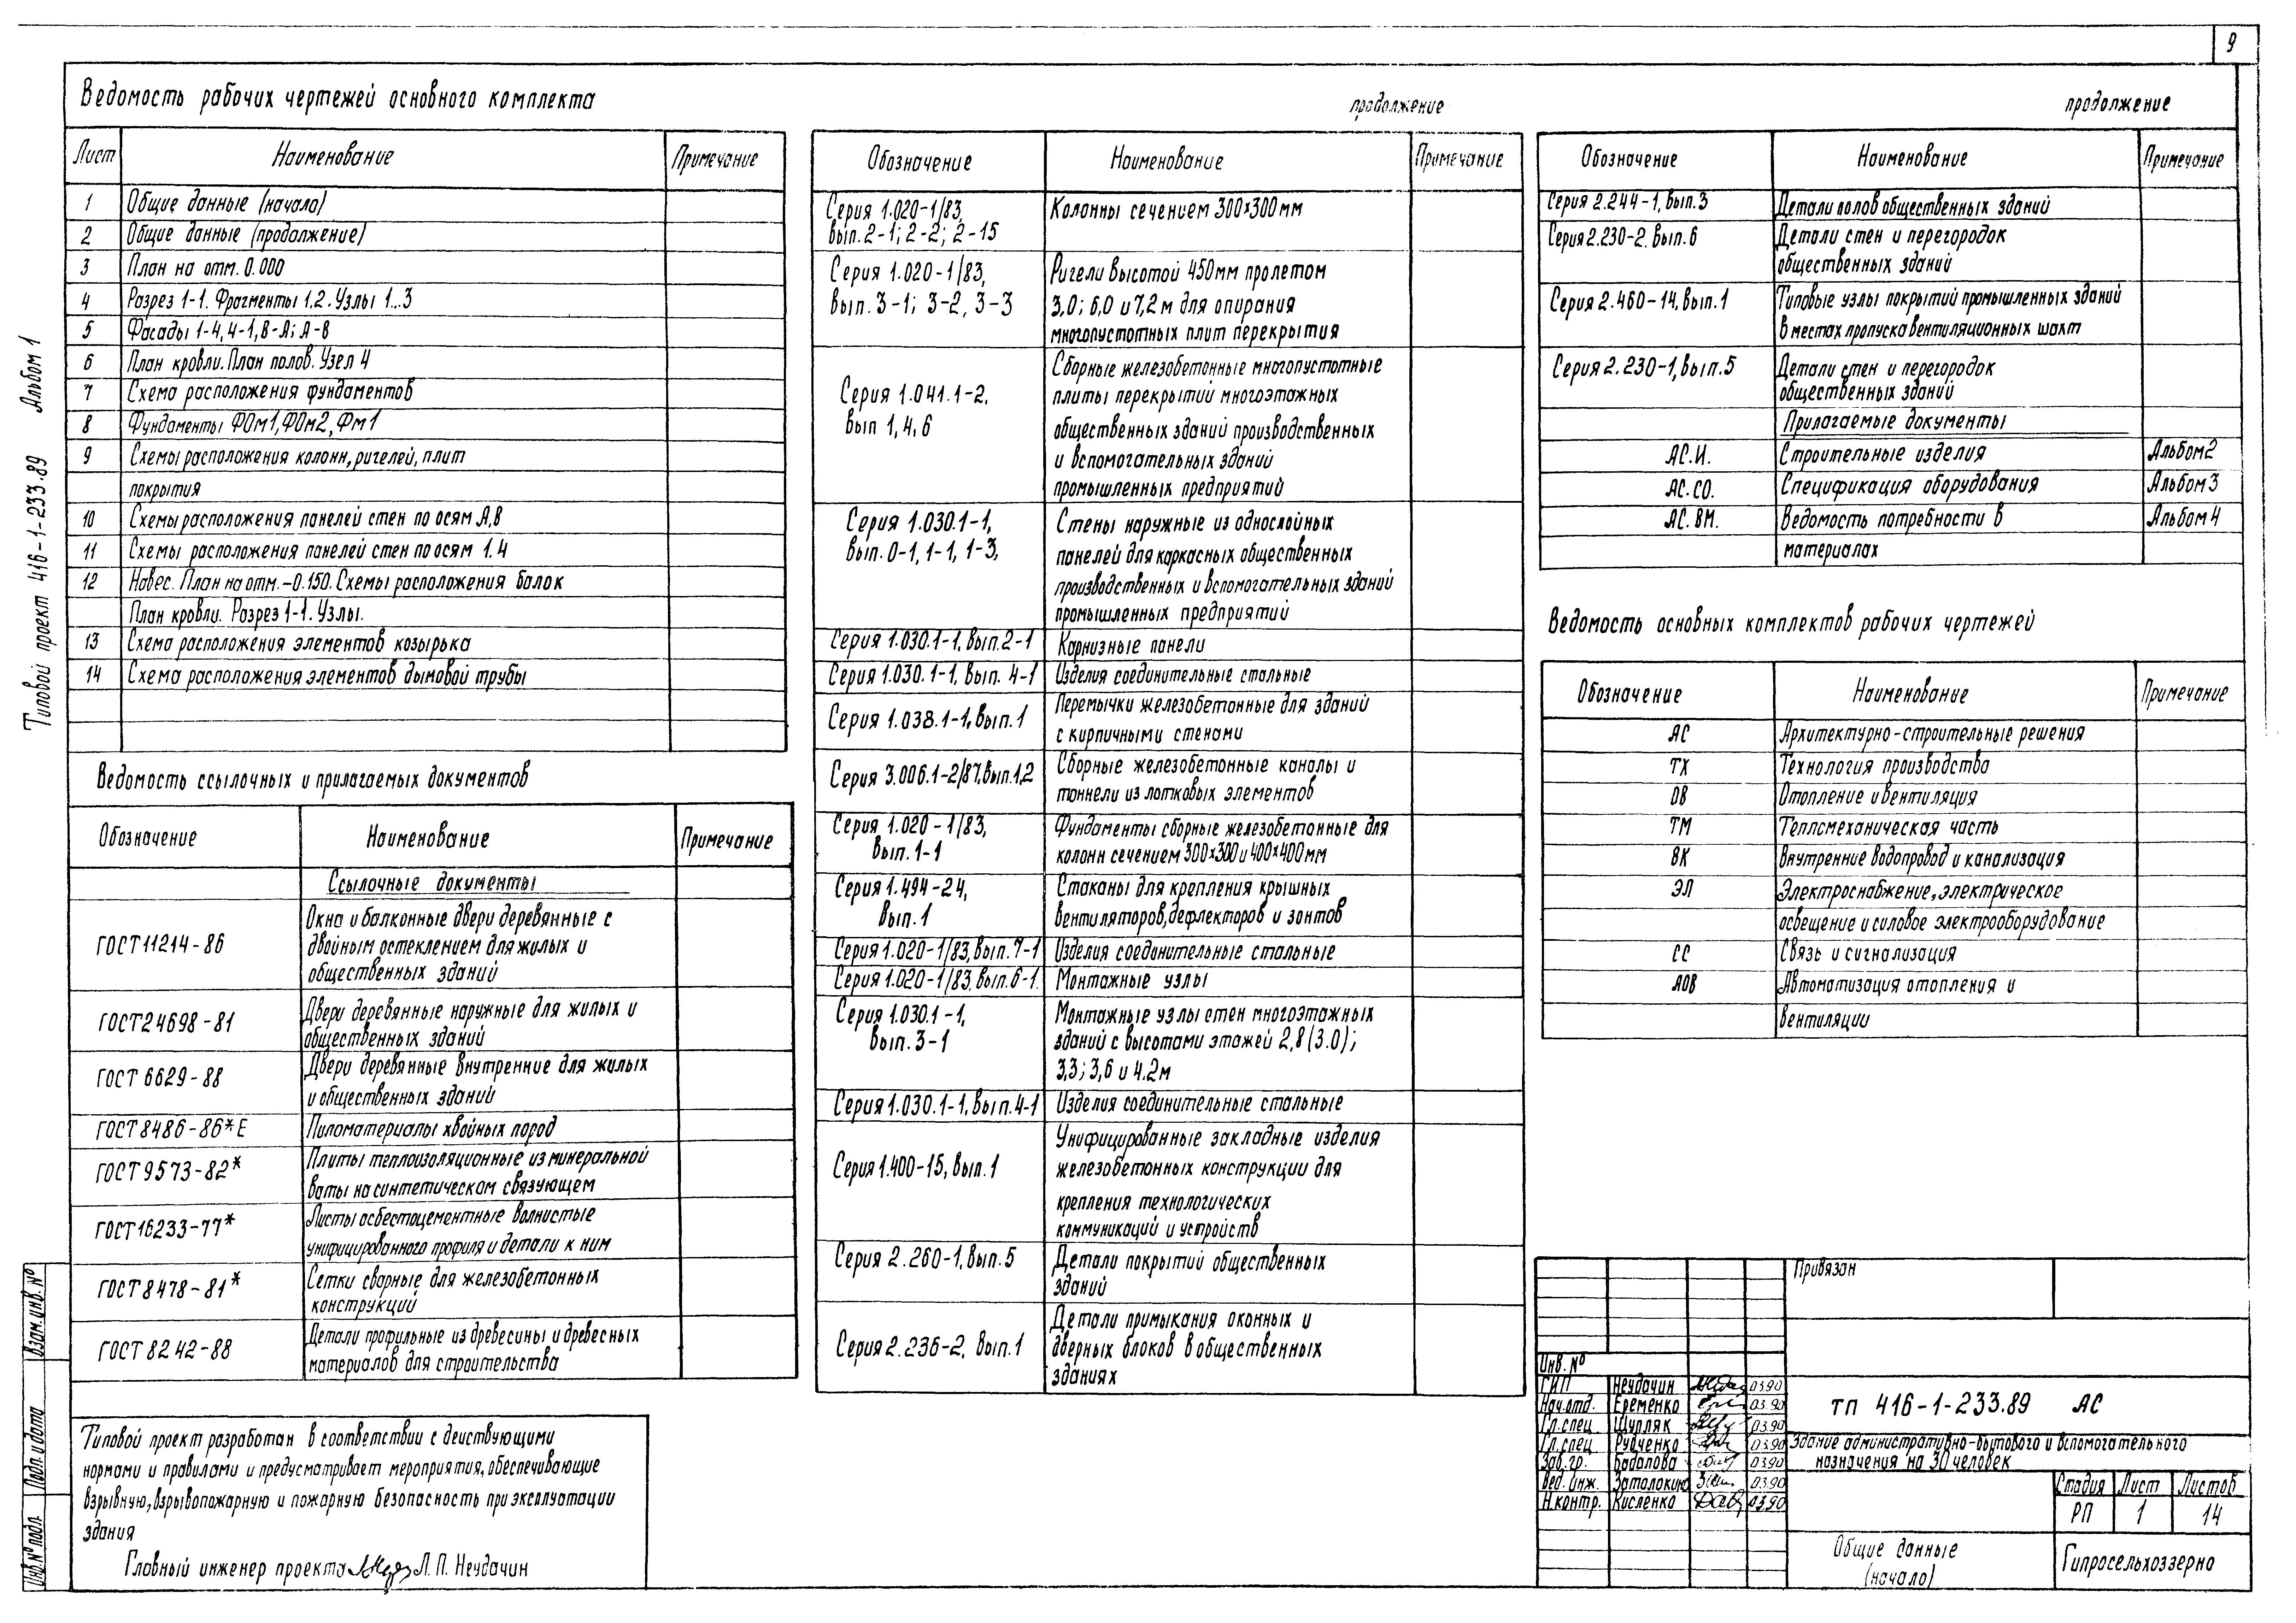 9
Ведомость рабочих чертежей основного комплекта
Лист Наименование Примечание
1 Общие данные (начало)
2 Общие данные (продолжение)
3 План на отм. 0.000
4 Разрез 1-1. Фрагменты 1,2. Узлы 1...3
5 Фасады 1-4, 4-1, В-А; А-В
6 План кровли. План полов. Узел 4
7 Схема расположения фундаментов
8 Фундаменты ФОм1, ФОм2, Фм1
9 Схемы расположения колонн, ригелей, плит
покрытия
10 Схемы расположения панелей стен по осям А,В
11 Схемы расположения панелей стен по осям 1.4
12 Навес. План на отм. -0.150. Схемы расположения балок
План кровли. Разрез 1-1. Узлы.
13 Схема расположения элементов козырька
14 Схема расположения элементов дымовой трубы
Ведомость ссылочных и прилагаемых документов
Обозначение Наименование Примечание
Ссылочные документы
ГОСТ 11214-86 Окна и балконные двери деревянные с
двойным остеклением для жилых и
общественных зданий
ГОСТ 24698-81 Двери деревянные наружные для жилых и
общественных зданий
ГОСТ 6629-88 Двери деревянные внутренние для жилых
и общественных зданий
ГОСТ 8486-86*Е Пиломатериалы хвойных пород
ГОСТ 9573-82* Плиты теплоизоляционные из минеральной
ваты на синтетическом связующем
ГОСТ 16233-77* Листы асбестоцементные волнистые
унифицированного профиля и детали к ним
ГОСТ 8478-81* Сетки сварные для железобетонных
конструкций
ГОСТ 8242-88 Детали профильные из древесины и древесных
материалов для строительства
Типовой проект разработан в соответствии с действующими
нормами и правилами и предусматривает мероприятия, обеспечивающие
взрывную, взрывопожарную и пожарную безопасность при эксплуатации
здания
Главный инженер проекта Л. П. Неудачин
продолжение
Обозначение Наименование Примечание
Серия 1.020-1/83, Колонны сечением 300×300 мм
вып. 2-1; 2-2; 2-15
Серия 1.020-1/83, Ригели высотой 450мм пролетом
вып. 3-1; 3-2, 3-3 3,0; 6,0 и 7,2 м для опирания
многопустотных плит перекрытия
Сборные железобетонные многопустотные
Серия 1.041.1-2, плиты перекрытий многоэтажных
вып 1, 4, 6 общественных зданий производственных
и вспомогательных зданий
промышленных предприятий
Серия 1.030.1-1, Стены наружные из однослойных
вып. 0-1, 1-1, 1-3, панелей для каркасных общественных
производственных и вспомогательных зданий
промышленных предприятий
Серия 1.030.1-1, вып. 2-1 Карнизные панели
Серия 1.030.1-1, вып. 4-1 Изделия соединительные стальные
Серия 1.038.1-1, вып. 1 Перемычки железобетонные для зданий
с кирпичными стенами
Серия 3.006.1-2/87, вып. 1,2 Сборные железобетонные каналы и
тоннели из лотковых элементов
Серия 1.020-1/83, Фундаменты сборные железобетонные для
вып. 1-1 колонн сечением 300×300 и 400×400 мм
Серия 1.494-24, Стаканы для крепления крышных
вып. 1 вентиляторов, дефлекторов и зонтов
Серия 1.020-1/83, вып. 7-1 Изделия соединительные стальные
Серия 1.020-1/83, вып. 6-1. Монтажные узлы
Серия 1.030.1-1, Монтажные узлы стен многоэтажных
вып. 3-1 зданий с высотами этажей 2,8 (3.0);
3,3; 3,6 и 4.2м
Серия 1.030.1-1, вып. 4-1 Изделия соединительные стальные
Унифицированные закладные изделия
Серия 1.400-15, вып. 1 железобетонных конструкции для
крепления технологических
коммуникаций и устройств
Серия 2.260-1, вып. 5 Детали покрытий общественных
зданий
Детали примыкания оконных и
Серия 2.236-2, вып. 1 дверных блоков в общественных
зданиях
продолжение
Обозначение Наименование Примечание
Серия 2.244-1, вып. 3 Детали полов общественных зданий
Серия 2.230-2. вып. 6 Детали стен и перегородок
общественных зданий
Серия 2.460-14, вып. 1 Типовые узлы покрытий промышленных зданий
в местах пропуска вентиляционных шахт
Серия 2.230-1, вып. 5 Детали стен и перегородок
общественных зданий
Прилагаемые документы
АС.И. Строительные изделия Альбом 2
АС.СО. Спецификация оборудования Альбом 3
АС.ВМ. Ведомость потребности в Альбом 4
материалах
Ведомость основных комплектов рабочих чертежей
Обозначение Наименование Примечание
АС Архитектурно-строительные решения
ТХ Технология производства
ОВ Отопление и вентиляция
ТМ Тепломеханическая часть
ВК Внутренние водопровод и канализация
ЭЛ Электроснабжение, электрическое
освещение и силовое электрооборудование
СС Связь и сигнализация
АОВ Автоматизация отопления и
вентиляции
Привязан
Инв. №
ГИП Неудачин 03.90
Нач.отд. Еременко 03.90
Гл.спец Щупляк 03.90
Гл.спец Рудченко 03.90
Зав.гр. Бадалова 03.90
Вед.инж. 03.90
Н.контр. Кисленко 03.90
ТП 416-1-233.89 АС
Здание административно-бытового и вспомогательного
назначения на 30 человек
Стадия Лист Листов
РП 1 14
Общие данные
(начало)
Гипросельхоззерно
Типовой проект 416-1-233.89 Альбом 1
Взам. инв. №
Подп. и дата
Инв. № подл.